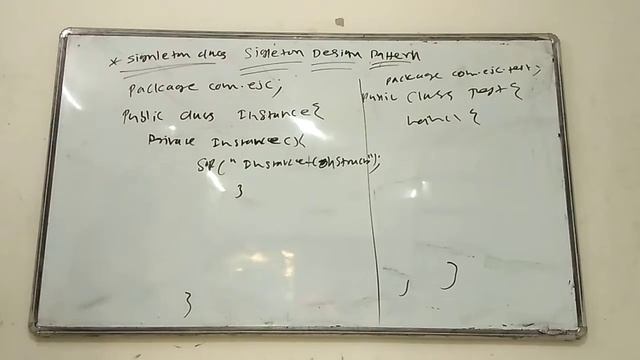 * Signleton class Sigleton Design Pattern
package com.ejc;
Public class Instance{
Private Instance(){
SOP("
);
}
}
package com.ejc.test;
Public Class Test {
main() {
}
}